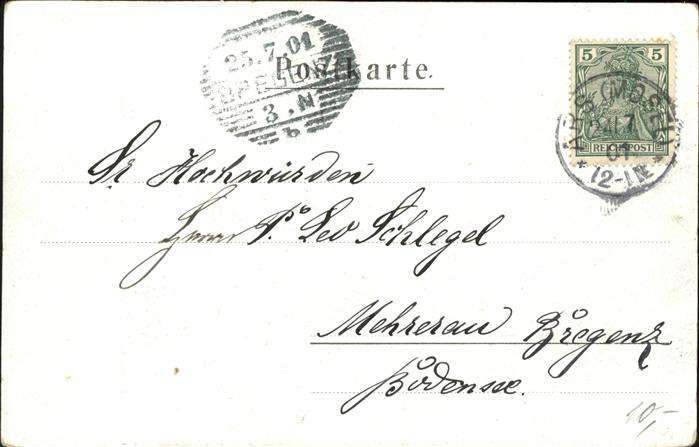 25.7.01
3.N
b
Postkarte.
5 5
REICHSPOST
ARS (MOSEL)
12-1N
Sr Hochwürden
Herrn P. Leo Schlegel
Mehrerau Bregenz
Bodensee.
10,-